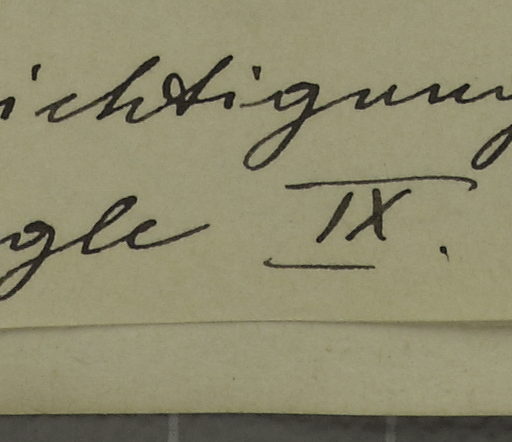 ichtigung
gle IX.